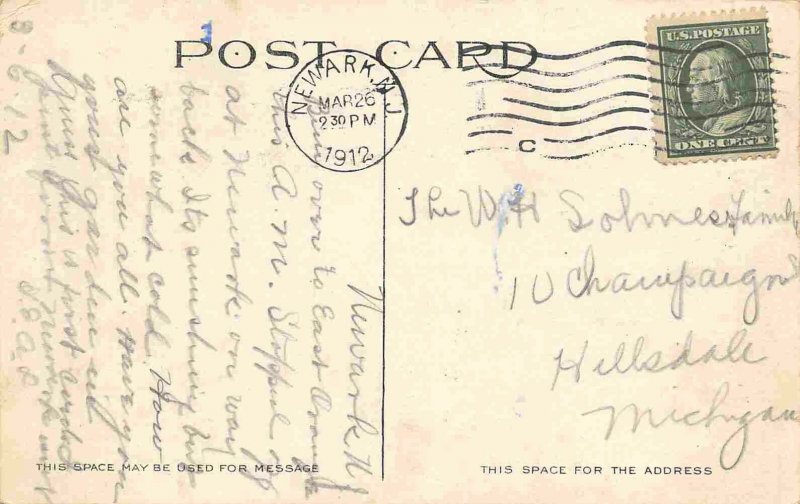 POST CARD
NEWARK, N.J.
MAR 26
2 30 PM
1912
C
U.S. POSTAGE
ONE CENT
The W H Sohmes Family
10 Champaign
Hillsdale
Michigan
Newark N J
over to East Orange
this A.M. Stopped off
at Newark on way
back. Its sunshiny but
somewhat cold. How
are you all. Have you
your garden in
This is first card
from Newark
3-6-12
THIS SPACE MAY BE USED FOR MESSAGE
THIS SPACE FOR THE ADDRESS